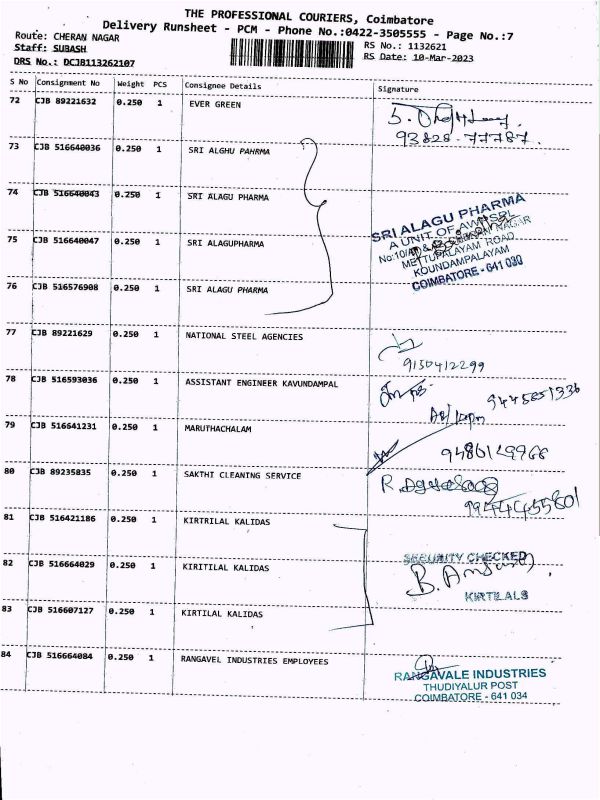 THE PROFESSIONAL COURIERS, Coimbatore
Delivery Runsheet - PCM - Phone No.:0422-3505555 - Page No.:7
Route: CHERAN NAGAR
RS No.: 1132621
Staff: SUBASH
RS Date: 10-Mar-2023
DRS No.: DCJB113262107
S No Consignment No Weight PCS Consignee Details Signature
72 CJB 89221632 0.250 1 EVER GREEN
93828-77787.
73 CJB 516640036 0.250 1 SRI ALGHU PAHRMA
74 CJB 516640043 0.250 1 SRI ALAGU PHARMA
SRI ALAGU PHARMA
A UNIT OF
75 CJB 516640047 0.250 1 SRI ALAGUPHARMA
METTUPALAYAM ROAD
KOUNDAMPALAYAM
COIMBATORE - 641 030
76 CJB 516576908 0.250 1 SRI ALAGU PHARMA
77 CJB 89221629 0.250 1 NATIONAL STEEL AGENCIES
9150412299
78 CJB 516593036 0.250 1 ASSISTANT ENGINEER KAVUNDAMPAL
79 CJB 516641231 0.250 1 MARUTHACHALAM
80 CJB 89235835 0.250 1 SAKTHI CLEANING SERVICE
81 CJB 516421186 0.250 1 KIRTRILAL KALIDAS
82 CJB 516664029 0.250 1 KIRITILAL KALIDAS
SECURITY CHECKED
KIRTILALS
83 CJB 516607127 0.250 1 KIRTILAL KALIDAS
84 CJB 516664084 0.250 1 RANGAVEL INDUSTRIES EMPLOYEES
RANGAVALE INDUSTRIES
THUDIYALUR POST
COIMBATORE - 641 034